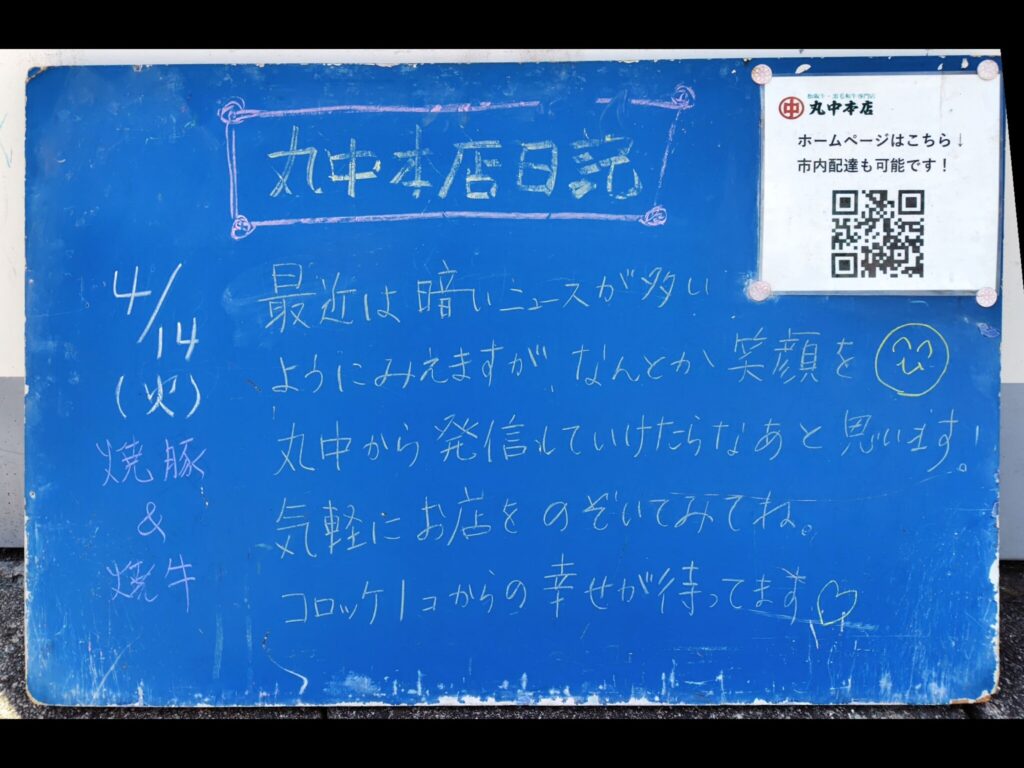 丸中本店日記
松阪牛・黒毛和牛専門店
丸中本店
ホームページはこちら↓
市内配達も可能です！
4/14
(火)
焼豚
&
焼牛
最近は暗いニュースが多い
ようにみえますが、なんとか笑顔を
丸中から発信していけたらなあと思います。
気軽にお店をのぞいてみてね。
コロッケ1コからの幸せが待ってます♡